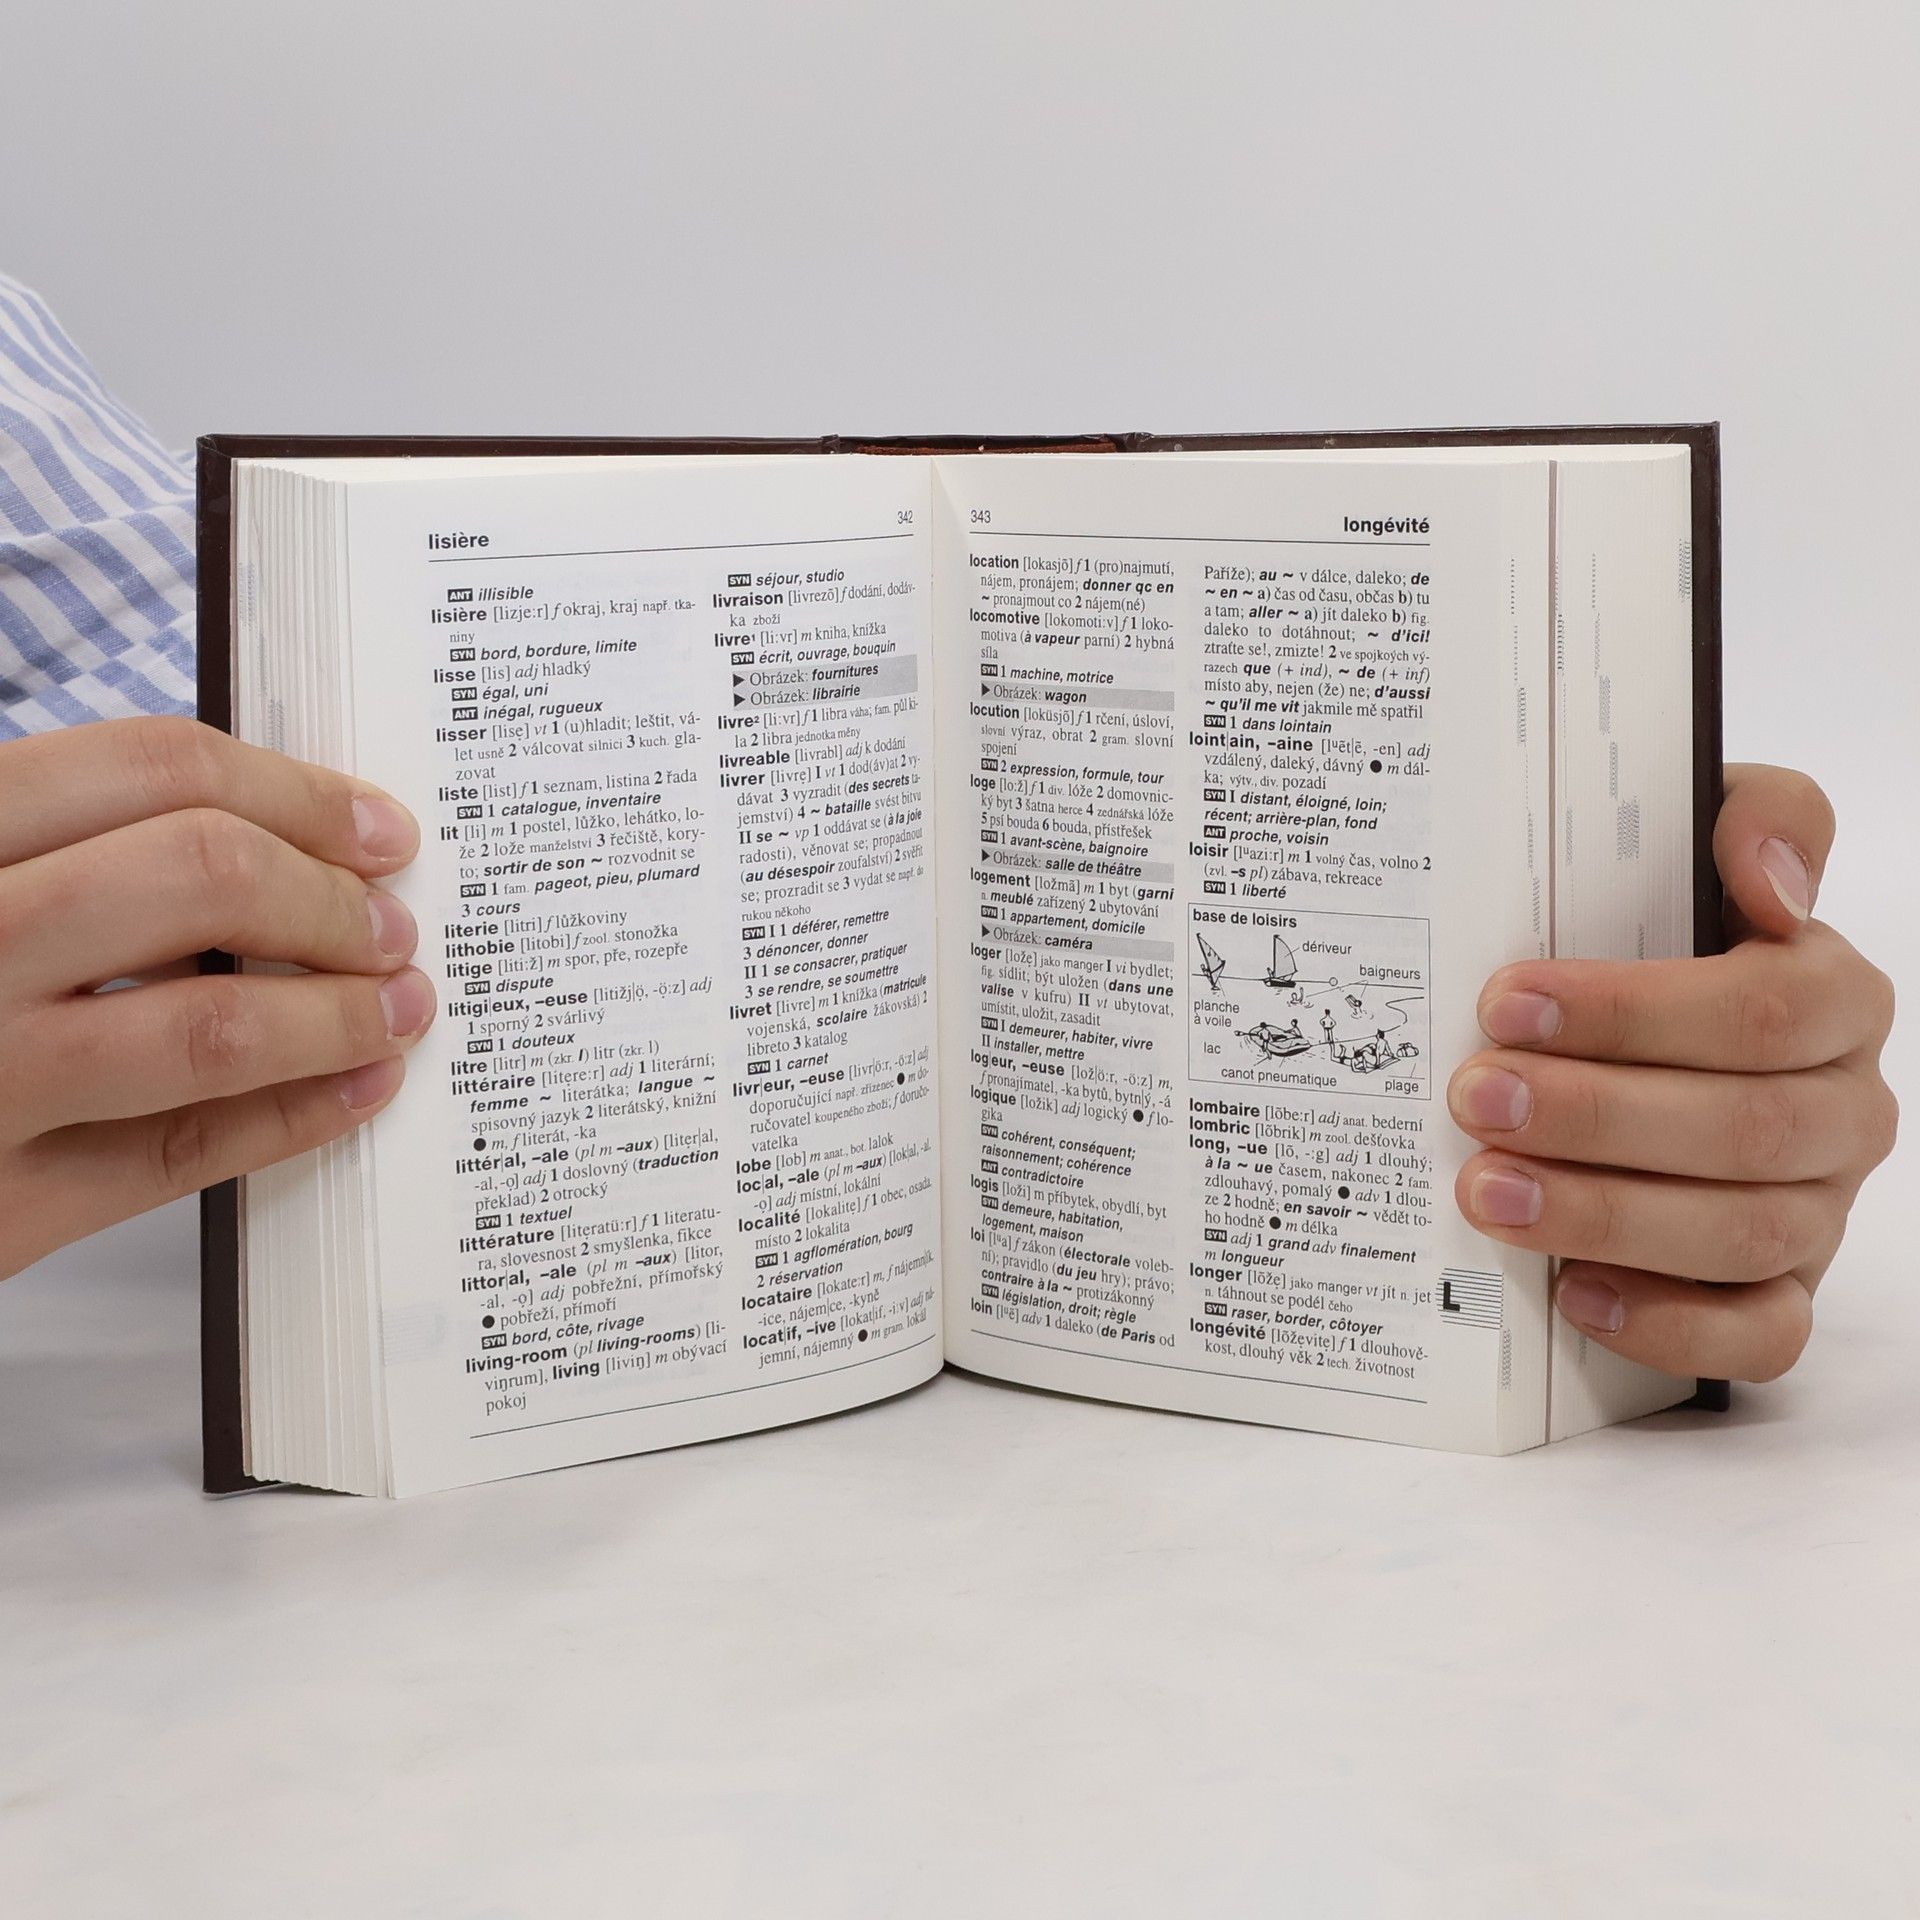 lisière
342
ANT illisible
lisière [lizje:r] f okraj, kraj např. tka-
niny
SYN bord, bordure, limite
lisse [lis] adj hladký
SYN égal, uni
ANT inégal, rugueux
lisser [lisẹ] vt 1 (u)hladit; leštit, vá-
let usně 2 válcovat silnici 3 kuch. gla-
zovat
liste [list] f 1 seznam, listina 2 řada
SYN 1 catalogue, inventaire
lit [li] m 1 postel, lůžko, lehátko, lo-
že 2 lože manželství 3 řečiště, kory-
to; sortir de son ~ rozvodnit se
SYN 1 fam. pageot, pieu, plumard
3 cours
literie [litri] f lůžkoviny
lithobie [litobi] f zool. stonožka
litige [liti:ž] m spor, pře, rozepře
SYN dispute
litigi|eux, –euse [litižj|ọ̈, -ọ̈:z] adj
1 sporný 2 svárlivý
SYN 1 douteux
litre [litr] m (zkr. l) litr (zkr. l)
littéraire [litẹre:r] adj 1 literární;
femme ~ literátka; langue ~
spisovný jazyk 2 literátský, knižní
● m, f literát, -ka
littér|al, –ale (pl m –aux) [litẹr|al,
-al, -ọ] adj 1 doslovný (traduction
překlad) 2 otrocký
SYN 1 textuel
littérature [litẹratü:r] f 1 literatu-
ra, slovesnost 2 smyšlenka, fikce
littor|al, –ale (pl m –aux) [litor,
-al, -ọ] adj pobřežní, přímořský
● pobřeží, přímoří
SYN bord, côte, rivage
living-room (pl living-rooms) [li-
viŋrum], living [liviŋ] m obývací
pokoj
SYN séjour, studio
livraison [livrezõ] f dodání, dodáv-
ka zboží
livre¹ [li:vr] m kniha, knížka
SYN écrit, ouvrage, bouquin
▶ Obrázek: fournitures
▶ Obrázek: librairie
livre² [li:vr] f 1 libra váha; fam. půl ki-
la 2 libra jednotka měny
livreable [livrabl] adj k dodání
livrer [livrẹ] I vt 1 dod(áv)at 2 vy-
dávat 3 vyzradit (des secrets ta-
jemství) 4 ~ bataille svést bitvu
II se ~ vp 1 oddávat se (à la joie
radosti), věnovat se; propadnout
(au désespoir zoufalství) 2 svěřit
se; prozradit se 3 vydat se např. do
rukou někoho
SYN I 1 déférer, remettre
3 dénoncer, donner
II 1 se consacrer, pratiquer
3 se rendre, se soumettre
livret [livre] m 1 knížka (matricule
vojenská, scolaire žákovská) 2
libreto 3 katalog
SYN 1 carnet
livr|eur, –euse [livr|ö:r, -ö:z] adj
doporučující např. zřízenec ● m do-
ručovatel koupeného zboží; f doručo-
vatelka
lobe [lob] m anat., bot. lalok
loc|al, –ale (pl m –aux) [lok|al, -al,
-ọ] adj místní, lokální
localité [lokalitẹ] f 1 obec, osada,
místo 2 lokalita
SYN 1 agflomération, bourg
2 réservation
locataire [lokate:r] m, f nájemn|ík,
-ice, nájem|ce, -kyně
locat|if, –ive [lokat|if, -i:v] adj ná-
jemní, nájemný ● m gram. lokál
343
longévité
location [lokasjõ] f 1 (pro)najmutí,
nájem, pronájem; donner qc en
~ pronajmout co 2 nájem(né)
locomotive [lokomoti:v] f 1 loko-
motiva (à vapeur parní) 2 hybná
síla
SYN 1 machine, motrice
▶ Obrázek: wagon
locution [loküsjõ] f 1 rčení, úsloví,
slovní výraz, obrat 2 gram. slovní
spojení
SYN 2 expression, formule, tour
loge [lo:ž] f 1 div. lóže 2 domovnic-
ký byt 3 šatna herce 4 zednářská lóže
5 psí bouda 6 bouda, přístřešek
SYN 1 avant-scène, baignoire
▶ Obrázek: salle de théâtre
logement [ložmã] m 1 byt (garni
n. meublé zařízený 2 ubytování
SYN 1 appartement, domicile
▶ Obrázek: caméra
loger [ložẹ] jako manger I vi bydlet;
fig. sídlit; být uložen (dans une
valise v kufru) II vt ubytovat,
umístit, uložit, zasadit
SYN I demeurer, habiter, vivre
II installer, mettre
log|eur, –euse [lož|ö:r, -ö:z] m,
f pronajímatel, -ka bytů, bytn|ý, -á
logique [ložik] adj logický ● f lo-
gika
SYN cohérent, conséquent;
raisonnement; cohérence
ANT contradictoire
logis [loži] m příbytek, obydlí, byt
SYN demeure, habitation,
logement, maison
loi [lᵘa] f zákon (électorale voleb-
ní); pravidlo (du jeu hry); právo;
contraire à la ~ protizákonný
SYN législation, droit; règle
loin [lᵘẽ] adv 1 daleko (de Paris od
Paříže); au ~ v dálce, daleko; de
~ en ~ a) čas od času, občas b) tu
a tam; aller ~ a) jít daleko b) fig.
daleko to dotáhnout; ~ d'ici!
ztraťte se!, zmizte! 2 ve spojkoých vý-
razech que (+ ind), ~ de (+ inf)
místo aby, nejen (že) ne; d'aussi
~ qu'il me vit jakmile mě spatřil
SYN 1 dans lointain
loint|ain, –aine [lᵘẽt|ẽ, -en] adj
vzdálený, daleký, dávný ● m dál-
ka; výtv., div. pozadí
SYN I distant, éloigné, loin;
récent; arrière-plan, fond
ANT proche, voisin
loisir [lᵘazi:r] m 1 volný čas, volno 2
(zvl. –s pl) zábava, rekreace
SYN 1 liberté
base de loisirs
dériveur
baigneurs
planche
à voile
lac
canot pneumatique
plage
lombaire [lõbe:r] adj anat. bederní
lombric [lõbrik] m zool. dešťovka
long, –ue [lõ, -:g] adj 1 dlouhý;
à la ~ ue časem, nakonec 2 fam.
zdlouhavý, pomalý ● adv 1 dlou-
ze 2 hodně; en savoir ~ vědět to-
ho hodně ● m délka
SYN adj 1 grand adv finalement
m longueur
longer [lõžẹ] jako manger vt jít n. jet
n. táhnout se podél čeho
SYN raser, border, côtoyer
longévité [lõžẹvitẹ] f 1 dlouhově-
kost, dlouhý věk 2 tech. životnost
L